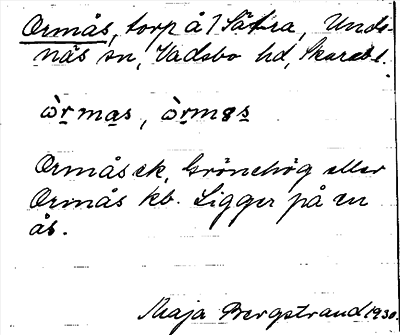 Ormås, torp å 1 Sätra, Unde-
näs sn, Vadsbo hd, Skarab. l.
ὼrmas, ὼrməs
Ormås ek, Grönehög eller
Ormås kb. Ligger på en
ås.
Maja Bergstrand 1930.